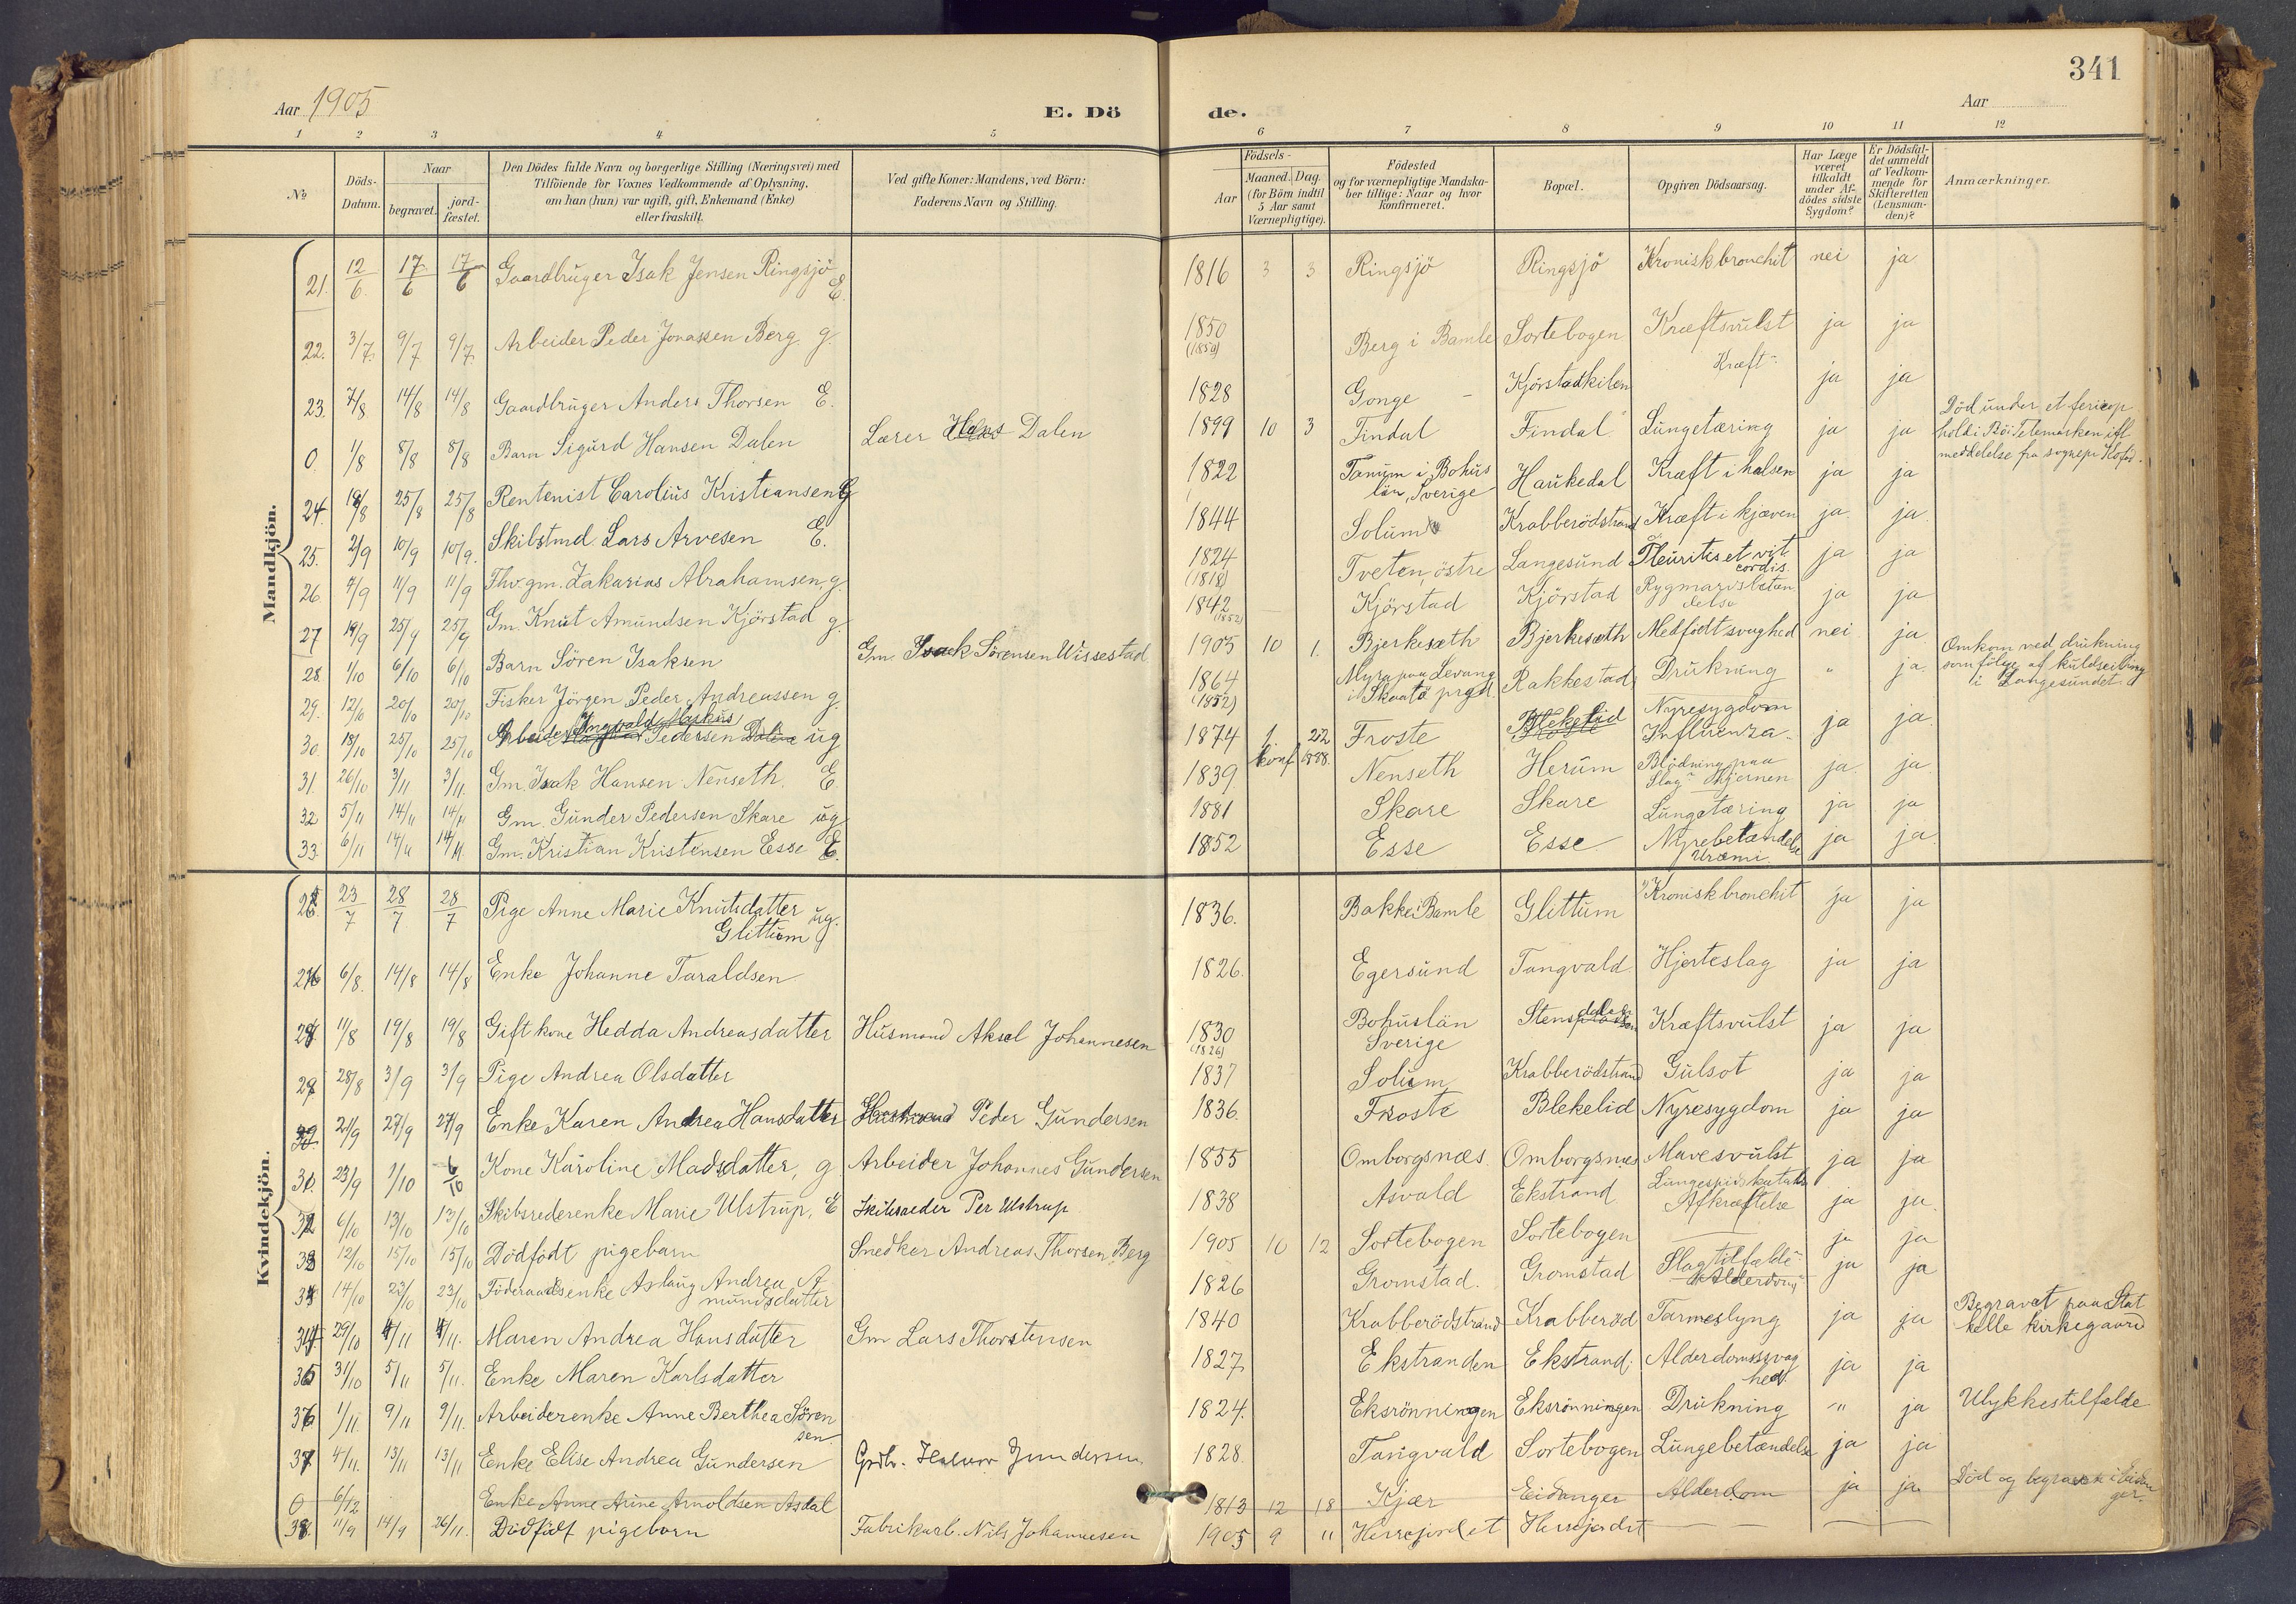 341
Aar 1905
E. Dö
de.
Aar
1 2 3 4 5 6 7 8 9 10 11 12
No
Döds-Datum.
Naar
begravet.
jord-fæstet.
Den Dödes fulde Navn og borgerlige Stilling (Næringsvei) med
Tilföiende for Voxnes Vedkommende af Oplysning,
om han (hun) var ugift, gift, Enkemand (Enke)
eller fraskilt.
Ved gifte Koner: Mandens, ved Börn:
Faderens Navn og Stilling.
Födsels-
Aar
Maaned. Dag.
(for Börn indtil
5 Aar samt
Værnepligtige).
Födested
og for værnepligtige Mandska-
ber tillige: Naar og hvor
konfirmeret.
Bopæl.
Opgiven Dödsaarsag.
Har Læge
været
tilkaldt
under Af-
dödes sidste
Sygdom?
Er Dödsfal-
det anmeldt
af Vedkom-
mende for
Skifteretten
(Lensman-
den)?
Anmærkninger.
Mandkjön.
21. 12/6 17/6 17/6 Gaardbruger Isak Jensen Ringsjö E. 1816 3 3 Ringsjö Ringsjö Kronisk bronchit nei ja
22. 3/7 9/7 9/7 Arbeider Peder Jonassen Berg g. 1850 Berg i Bamle Sortebogen Kræftsvulst ja ja
23. 7/8 14/8 14/8 Gaardbruger Anders Thorsen E. 1828 Gonge Kjörstadkilen Kræft ja ja
0. 1/8 8/8 8/8 Barn Sigurd Hansen Dalen Lærer Hans Dalen 1899 10 3 Findal Findal Lungetæring ja ja Död under et ferieop
hold i Bö i Telemarken ifl
meddelelse fra sognepr
24. 18/8 25/8 25/8 Rentenist Carolius Kristiansen G 1822 Tanum i Bohus
län, Sverige Haukedal Kræft i halsen ja ja
25. 2/9 10/9 10/9. Skibstmd. Lars Arvesen E. 1844 Solum Krabberödstrand Kræft i kjæven ja ja
26. 4/9 11/9 11/9 Fhv. gm. Zakarias Abrahamsen, g. 1824
(1818) Tveten, östre Langesund Pleuritis et vit.
cordis. ja ja
27 19/9 25/9 25/9 Gm. Knut Amundsen Kjörstad g. 1842
(1852) Kjörstad Kjörstad Rygmarvsbetæn
delse ja ja
28. 1/10 6/10 6/10 Barn Sören Isaksen Gm. Isack Sörensen Wissestad 1905 10 1. Bjerkesæth Bjerkesæth Medfödt svaghed nei ja
29. 12/10 20/10 20/10 Fisker Jörgen Peder Andreassen g. 1864
(1852) Myra paa Levang
i Skaatö prgd. Rakkestad Drukning " ja. Omkom ved drukning
som fölge af kuldseiling
i Langesundet
30. 18/10 25/10 25/10 Arbeider Ingvald Markus Pedersen ug 1874 1. 22/2
konf. 1888. Froste Blekelid Nyresygdom
Influenza. ja ja.
31. 26/10 3/11 3/11. Gm. Isak Hansen Nenseth. E. 1839. Nenseth Herum Blödning paa
Slag hjernen ja ja
32 5/11 14/11 14/11 Gm. Gunder Pedersen Skare ug 1881 Skare Skare Lungetæring ja ja
33. 6/11 14/11 14/11. Gm. Kristian Kristensen Esse E. 1852 Esse Esse Nyrebetændelse
Uræmi. ja ja
Kvindekjön.
23/7 28/7 28/7 Pige Anne Marie Knutsdatter ug.
Glittum 1836. Bakke i Bamle Glittum Kronisk bronchit ja ja
6/8. 14/8 14/8 Enke Johanne Taraldsen 1826. Egersund Tangvald Hjerteslag ja ja
28. 11/8 19/8 19/8 Gift kone Hedda Andreasdatter Husmand Aksel Johannesen 1830
(1826) Bohuslän
Sverige Kræftsvulst ja ja
29 28/8 3/9 3/9 Pige Andrea Olsdatter 1837 Solum Krabberödstrand Gulsot ja ja
21/9 27/9 27/9 Enke Karen Andrea Hansdatter Husmand Peder Gundersen 1836. Froste Blekelid Nyresygdom ja ja
31. 23/9 1/10 6/10 Kone Karoline Madsdatter, g Arbeider Johannes Gundersen 1855 Omborgsnæs. Omborgsnæs Mavesvulst ja ja
32 6/10 13/10 13/10 Skibsrederenke Marie Ulstrup, E Skibsreder Per Ulstrup 1838 Asvald Ekstrand
Afkræftelse ja ja.
33 12/10 15/10 15/10 Dödfödt pigebarn Snedker Andreas Thorsen Berg 1905 10 12 Sortebogen Sortebogen ja ja
14/10 23/10 23/10 Föderaadsenke Aslaug Andrea A
mundsdatter 1826 Gromstad. Gromstad Slagtilfælde
Alderdom ja ja
34 29/10 4/11 4/11. Maren Andrea Hansdatter Gm Lars Thorstensen 1840 Krabberödstrand Krabberöd Tarmeslyng ja ja Begravet paa Stat
helle kirkegaard
35 31/10 5/11 5/11. Enke Maren Karlsdatter 1827. Ekstranden Ekstrand. Alderdomssvag
hed ja ja
36 1/11. 9/11 9/11. Arbeiderenke Anne Berthea Sören
sen 1824. Eksrönningen Eksrönningen Drukning " ja Ulykkestilfælde
37 4/11. 13/11 13/11 Enke Elise Andrea Gundersen Grdbr. Halvor Gundersen 1828. Tangvald Sortebogen Lungebetændelse ja ja
0 6/12 Enke Anne Arine Arnoldsen Asdal 1813 12 18 Kjær Eidanger Alderdom ja ja. Död og begravet i Eidan
ger.
38. 11/9 14/9 26/11. Dödfödt pigebarn Fabrikarb. Nils Johannesen 1905 9 " Herrejordet Herrejordet